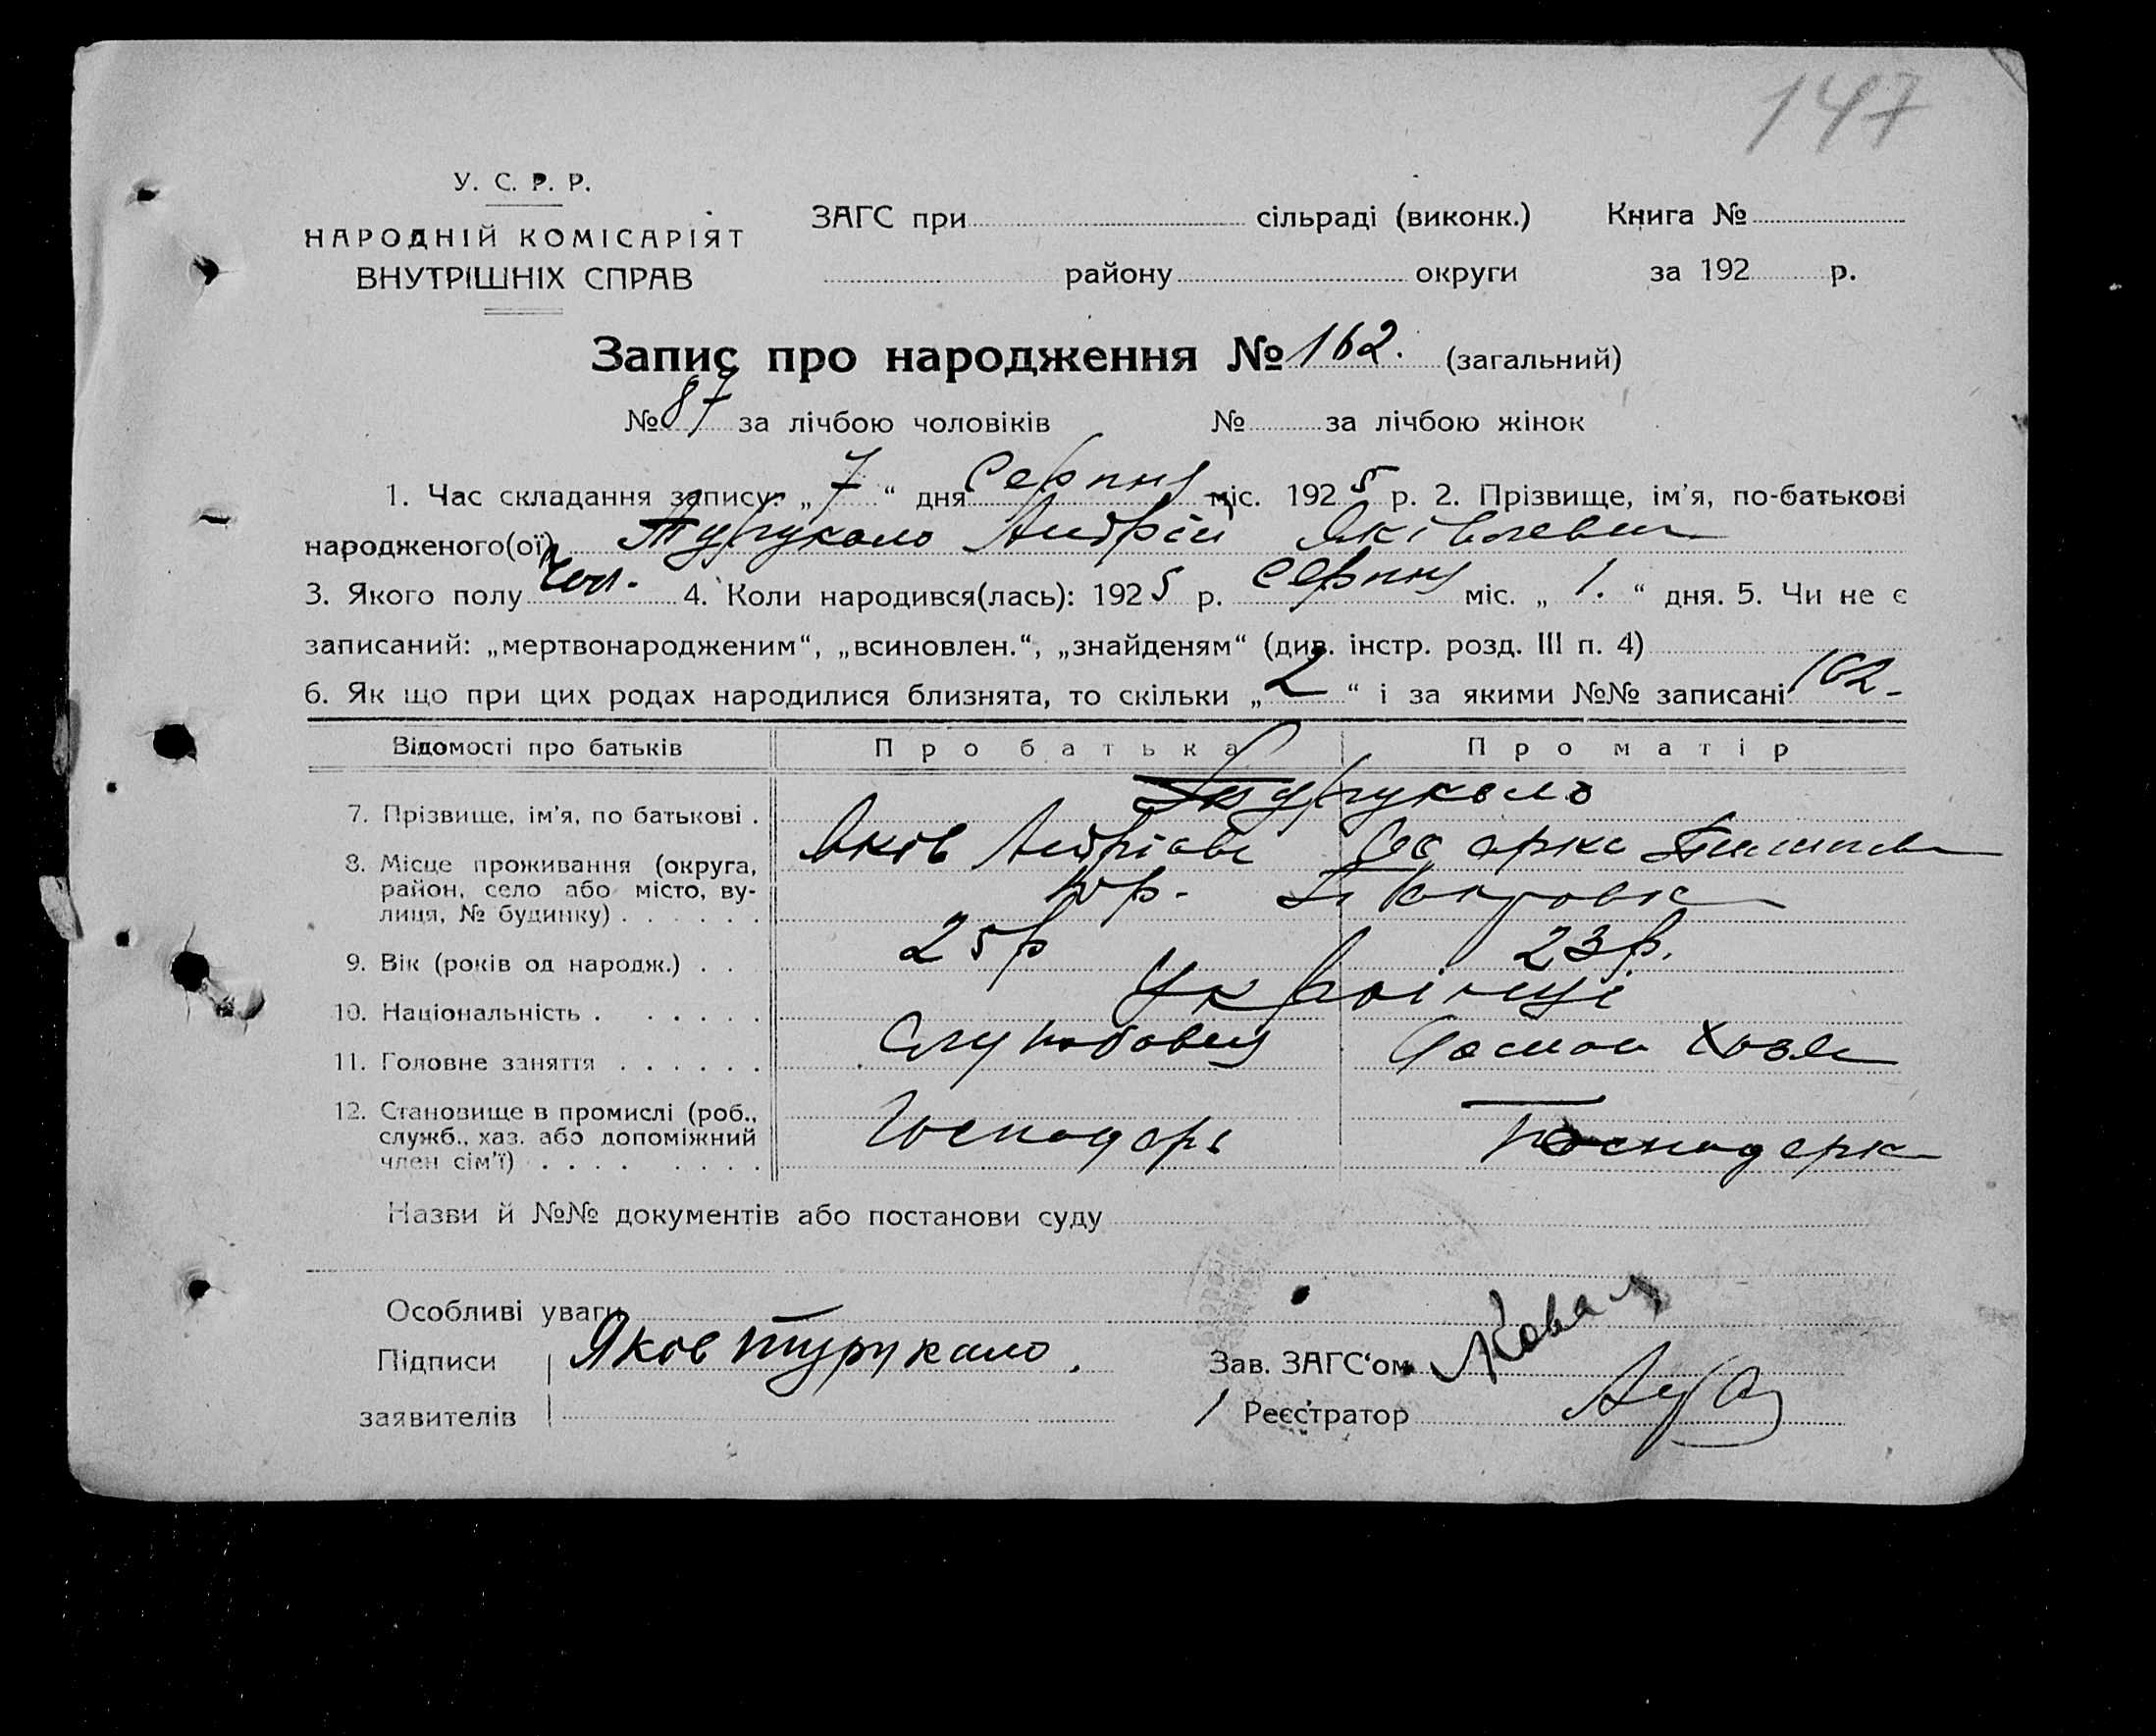 147
У. С. Р. Р.
НАРОДНІЙ КОМІСАРІЯТ
ВНУТРІШНІХ СПРАВ
ЗАГС при сільраді (виконк.) Книга №
району округи за 192 р.
Запис про народження № 162. (загальний)
№ 87 за лічбою чоловіків № за лічбою жінок
1. Час складання запису: „ 7 “ дня Серпня міс. 192 5 р. 2. Прізвище, ім'я, по-батькові
народженого(ої) Турукало Андрій Яківлевич
3. Якого полу чол. 4. Коли народився(лась): 192 5 р. серпня міс. „ 1. “ дня. 5. Чи не є
записаний: „мертвонародженим“, „всиновлен.“, „знайденям“ (див. інстр. розд. III п. 4)
6. Як що при цих родах народилися близнята, то скільки „ 2 “ і за якими №№ записані 162-
Відомості про батьків Про батька Про матір
7. Прізвище, ім'я, по батькові . Турукало
Яків Андріов Одарка
8. Місце проживання (округа,
район, село або місто, ву-
лиця, № будинку) . . . . . .
9. Вік (років од народж.) . . 25р 23р.
10. Національність . . . . . . Українці
11. Головне заняття . . . . . . Домаш Хозя
12. Становище в промислі (роб.,
служб., хаз. або допоміжний
член сім'ї) . . . . . . . . Господарь Господарк
Назви й №№ документів або постанови суду
Особливі уваги
Підписи Яков Турукало. Зав. ЗАГС'ом Коваль
заявителів Реєстратор